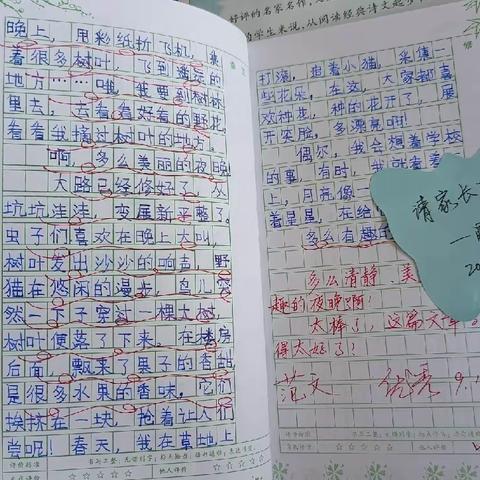 好评的名家名作,
的学生来说,从阅读经典诗文起
晚上,用彩纸折飞机,载
着很多树叶,飞到遥远的
地方……哦,我要到树林
里去,去看看好看的野花,
看看我摘过树叶的地方。
啊,多么美丽的夜晚!
大路已经修好了,从
坑坑洼洼,变展新平整了。
虫子们喜欢在晚上大叫,
树叶发出沙沙的响声,野
猫在悠闲的漫步,鸟儿突
然一下子穿过一棵大树,
树叶便落了下来。在楼房
后面,飘来了果子的香味,
是很多水果的香味,它们
挨挤在一块,抢着让人们
尝呢!春天,我在草地上
打滚,抱着小猫,采集一
些花朵。在这,大家都喜
欢种花,种的花开了,展
开笑脸,多漂亮啊!
偶尔,我会想着学校
的事,有时,我
上,月亮像一
着星星,在给
多么有趣的
多么清静、美
趣的夜晚啊!
太棒了,这篇文章
得太好了!
范文 优 9.
请家长
20